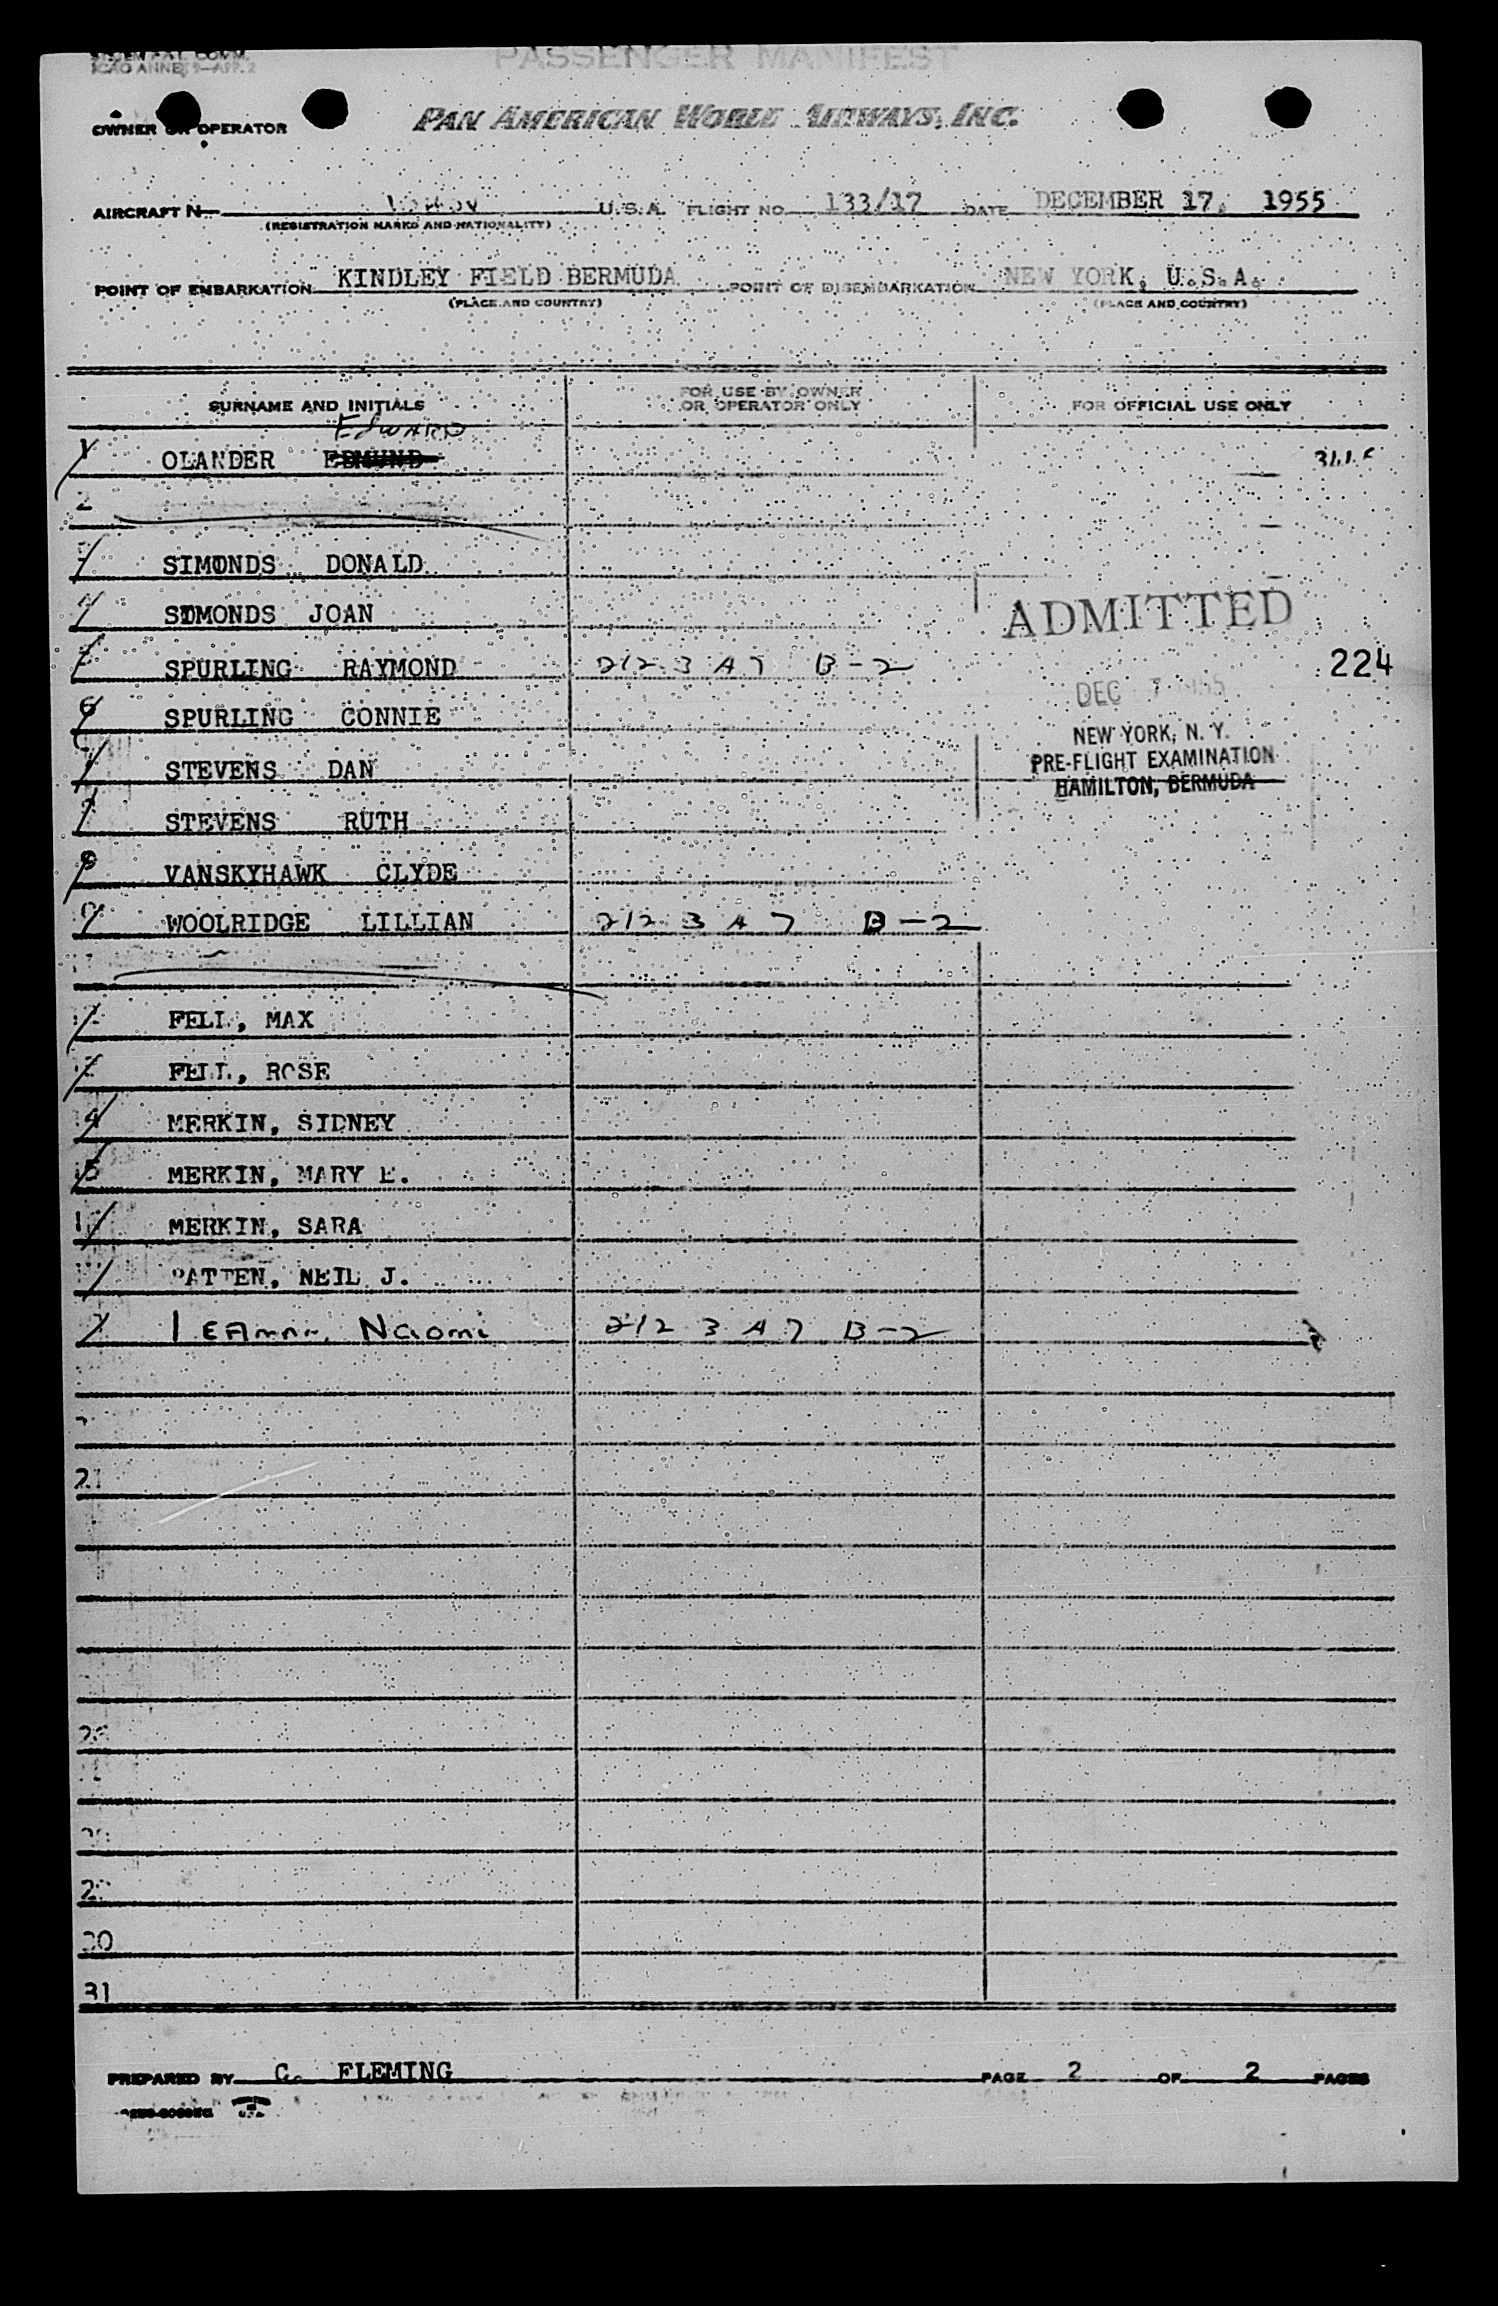 PASSENGER MANIFEST
ICAO ANNEX 9—APP. 2
OWNER OR OPERATOR PAN AMERICAN WORLD AIRWAYS, INC.
AIRCRAFT N U.S.A. FLIGHT NO. 133/17 DATE DECEMBER 17, 1955
(REGISTRATION MARKS AND NATIONALITY)
POINT OF EMBARKATION KINDLEY FIELD BERMUDA POINT OF DISEMBARKATION NEW YORK, U.S.A.
(PLACE AND COUNTRY) (PLACE AND COUNTRY)
SURNAME AND INITIALS FOR USE BY OWNER OR OPERATOR ONLY FOR OFFICIAL USE ONLY
EDWARD
1 OLANDER EDMUND
2
SIMONDS DONALD
SIMONDS JOAN
ADMITTED
SPURLING RAYMOND 212 3 A 7 B-2 224
DEC 1955
6 SPURLING CONNIE
NEW YORK, N.Y.
PRE-FLIGHT EXAMINATION
STEVENS DAN
HAMILTON, BERMUDA
STEVENS RUTH
VANSKYHAWK CLYDE
WOOLRIDGE LILLIAN 212 3 A 7 B-2
FELL, MAX
FELL, ROSE
4 MERKIN, SIDNEY
5 MERKIN, MARY E.
MERKIN, SARA
PATTEN, NEIL J.
Naomi 212 3 A 7 B-2
21
26
29
30
31
PREPARED BY C. FLEMING PAGE 2 OF 2 PAGES